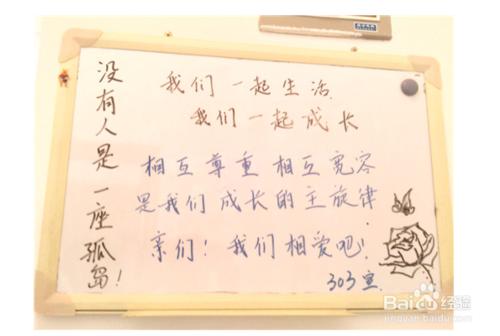 没有人是一座孤岛!
我们一起生活
我们一起成长
相互尊重 相互宽容
是我们成长的主旋律
亲们!我们相爱吧!
303室
Baidu经验
jingyan.baidu.com